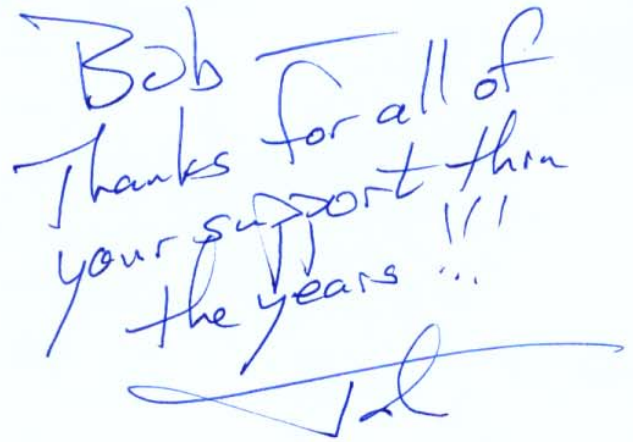 Bob —
Thanks for all of
your support thru
the years !!!